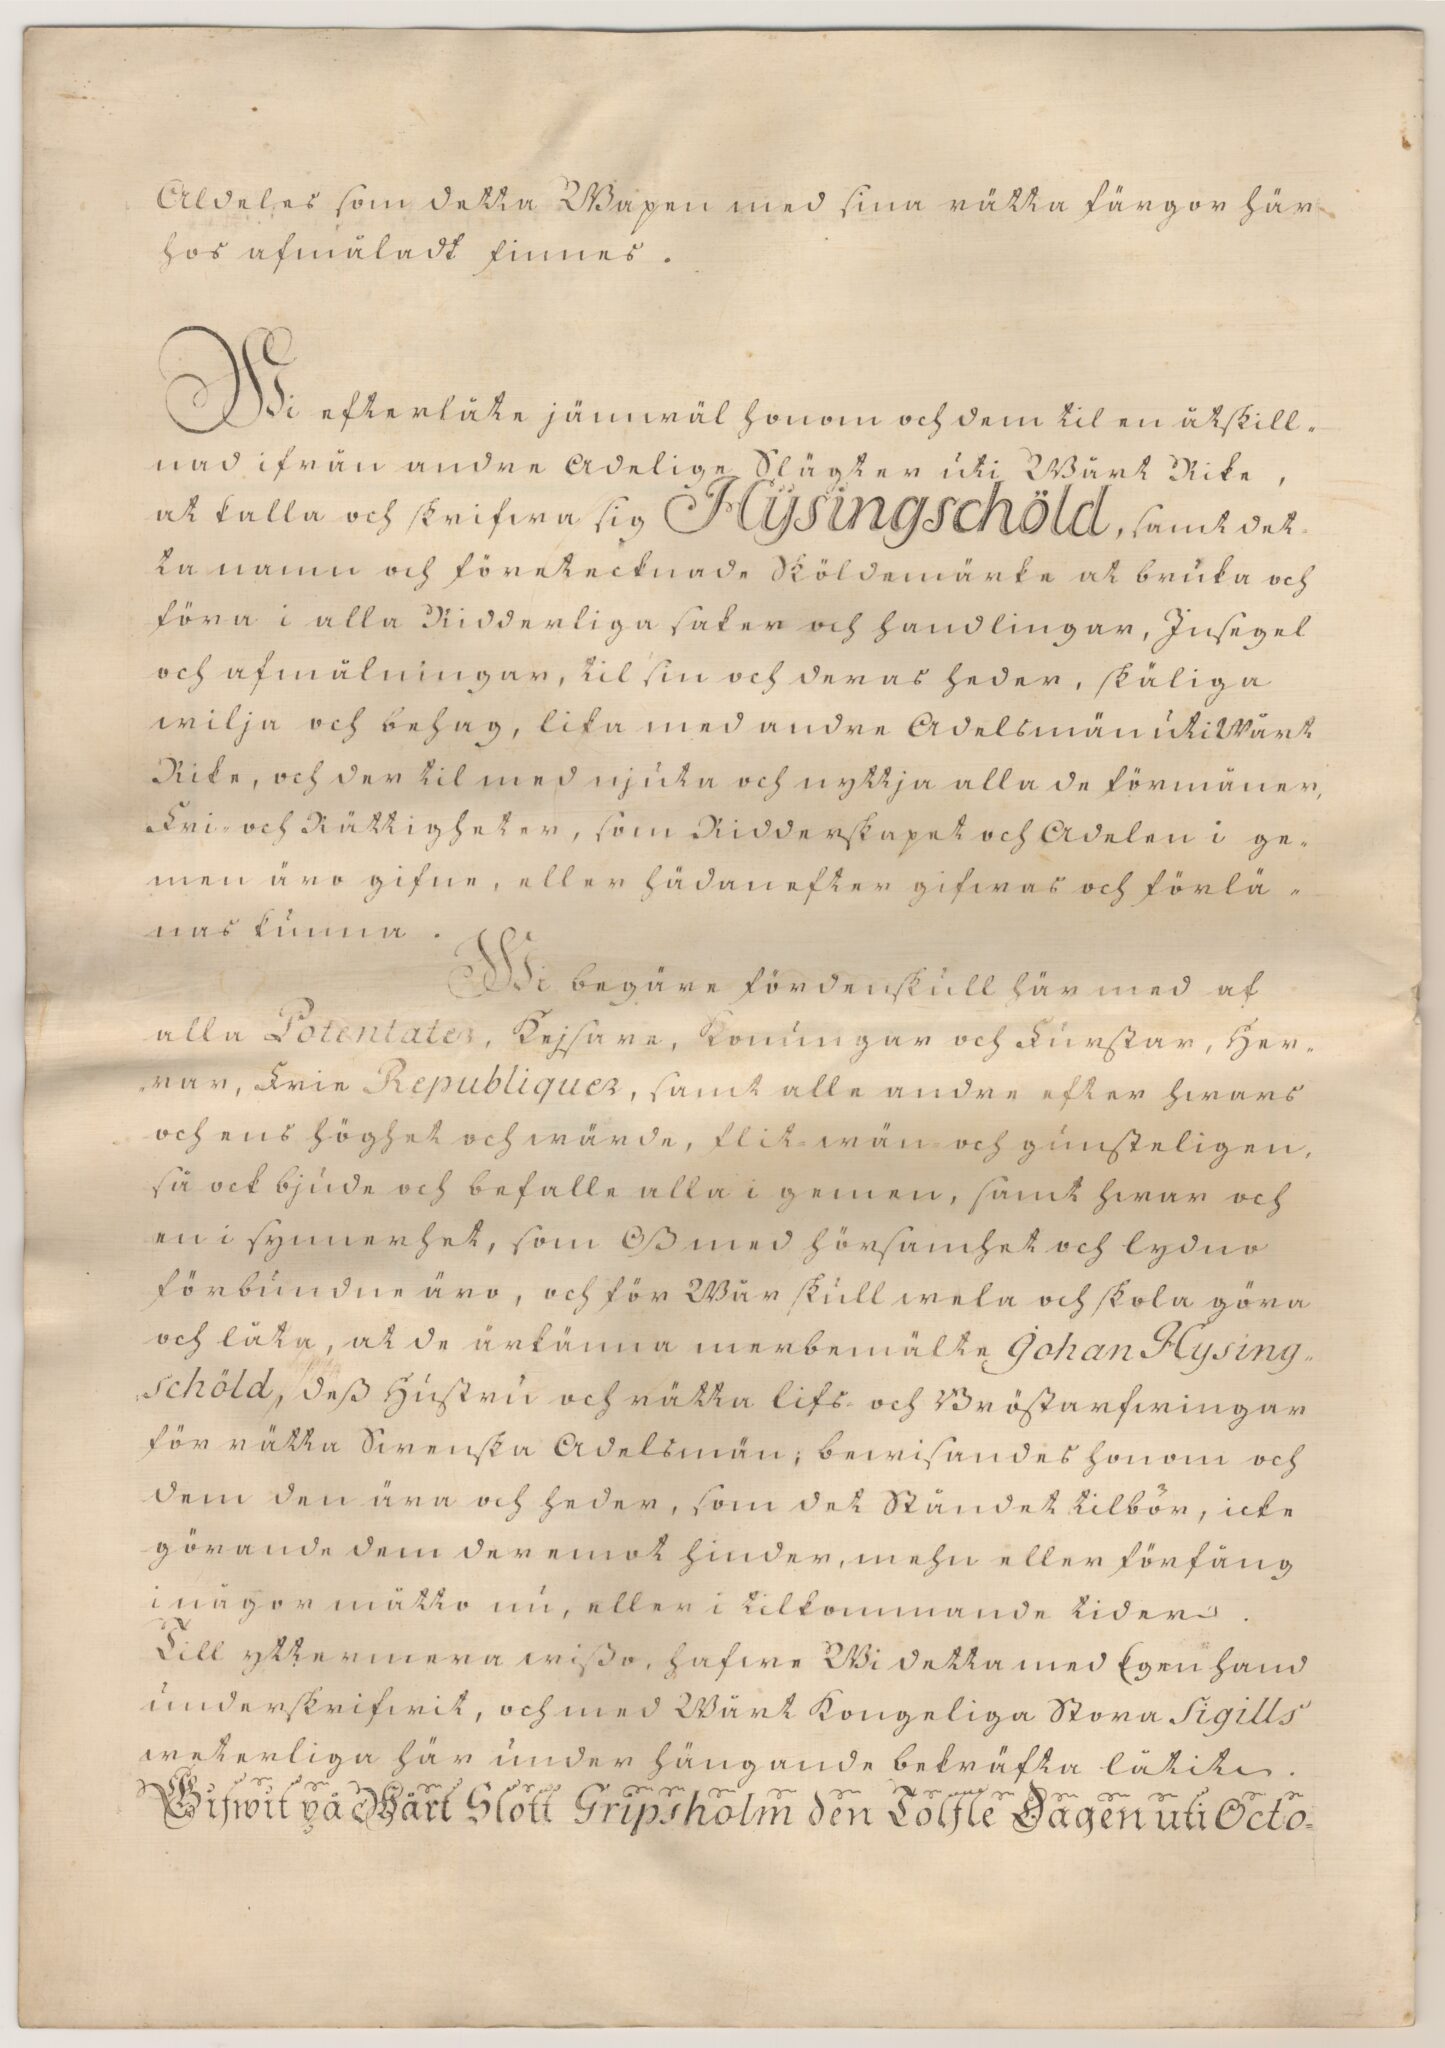 Aldeles som detta Wapen med sina rätta färgor här
hos afmåladt finnes.
Wi efterlåte jämwäl honom och dem til en åtskill-
nad ifrån andre Adelige Slägter uti Wårt Rike,
at kalla och skrifwa sig Hysingschöld, samt det-
ta namn och företecknade Sköldemärke at bruka och
föra i alla Ridderliga saker och handlingar, Insegel
och afmålningar, til sin och deras heder, skäliga
wilja och behag, lika med andre Adelsmän uti Wårt
Rike, och der til med njuta och nyttja alla de förmåner,
Fri- och Rättigheter, som Ridderskapet och Adelen i ge-
men äro gifne, eller hädanefter gifwas och förlä-
nas kunna.
Wi begäre fördenskull här med af
alla Potentater, Kejsare, Konungar och Furstar, Her-
rar, Frie Republiquer, samt alle andre efter hwars
och ens höghet och wärde, flit- wän- och gunsteligen,
så ock bjude och befalle alla i gemen, samt hwar och
en i synnerhet, som Oß med hörsamhet och lydno
förbundne äro, och för Wår skull wela och skola göra
och låta, at de ärkänna merbemälte Johan Hysing-
schöld, deß Hustru och rätta lifs- och Bröstarfwingar
för rätta Swenska Adelsmän; bewisandes honom och
dem den ära och heder, som det Ståndet tilbör, icke
görande dem deremot hinder, mehn eller förfång
i någor måtto nu, eller i tilkommande tider.
Till yttermera wißo, hafwe Wi detta med Egen hand
underskrifwit, och med Wårt Kongeliga Stora Sigills
weterliga här under hängande bekräfta låtit.
Gifwit på Wårt Slott Gripsholm den Tolfte Dagen uti Octo-